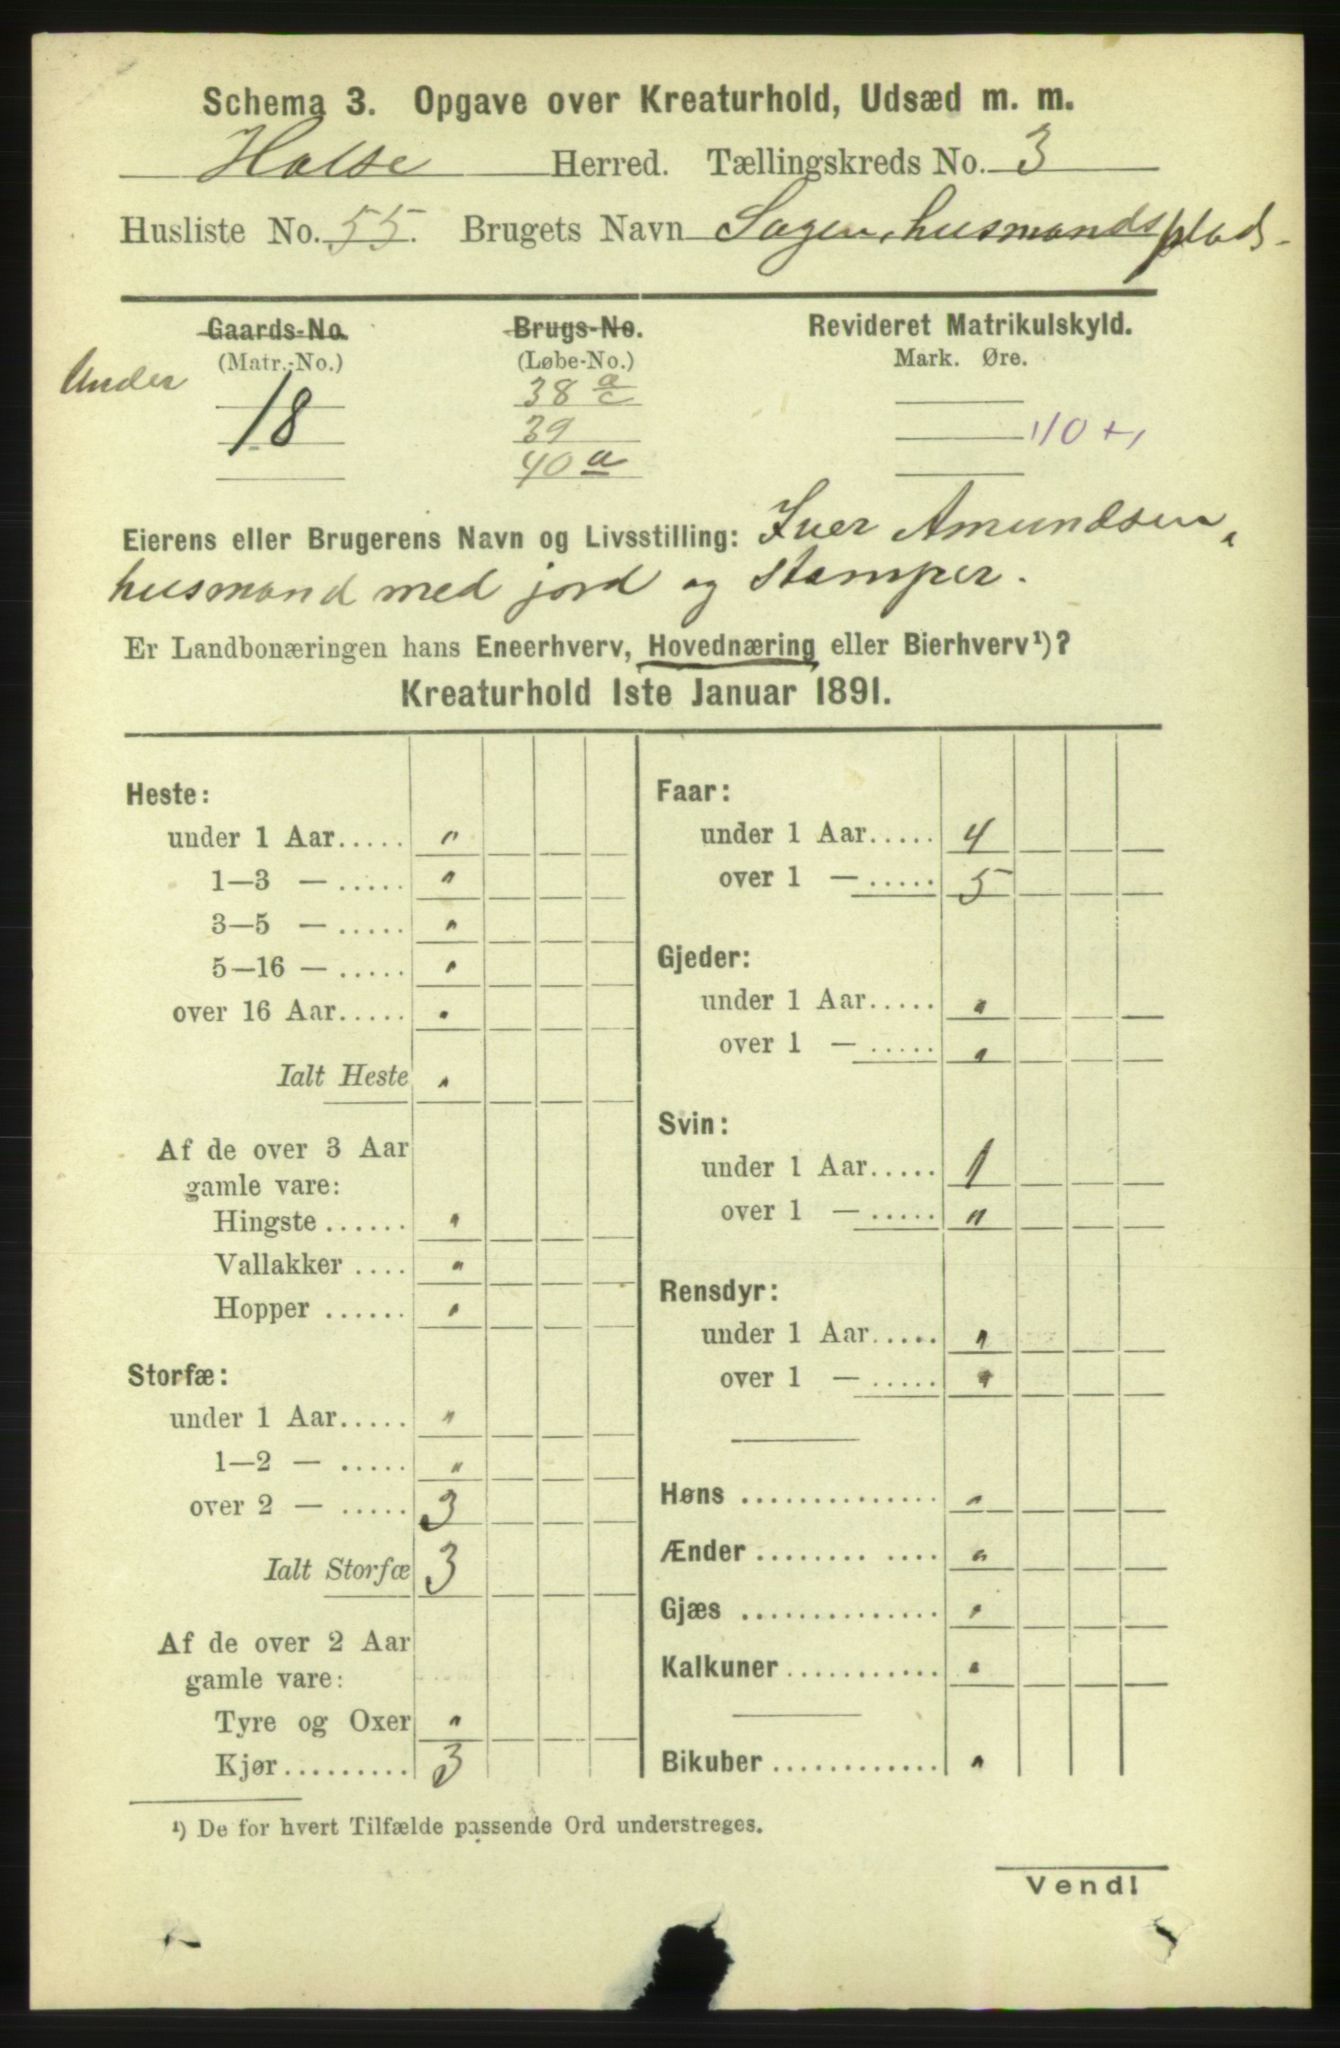 Schema 3. Opgave over Kreaturhold, Udsæd m. m.
Halse Herred. Tællingskreds No. 3
Husliste No. 55. Brugets Navn Sagen, husmandsplads
Gaards-No. Brugs-No. Revideret Matrikulskyld.
(Matr.-No.) (Løbe-No.) Mark. Øre.
Under 18 38 a/c
39 10 +
40 a
Eierens eller Brugerens Navn og Livsstilling: Iver Amundsen,
husmand med jord og stamper.
Er Landbonæringen hans Eneerhverv, Hovednæring eller Bierhverv¹)?
Kreaturhold 1ste Januar 1891.
Heste:
under 1 Aar..... "
1—3 — ..... "
3—5 — ..... "
5—16 — ..... "
over 16 Aar..... "
Ialt Heste "
Af de over 3 Aar
gamle vare:
Hingste...... "
Vallakker.... "
Hopper ...... "
Storfæ:
under 1 Aar..... "
1—2 — ..... "
over 2 — ..... 3
Ialt Storfæ 3
Af de over 2 Aar
gamle vare:
Tyre og Oxer "
Kjør......... 3
Faar:
under 1 Aar..... 4
over 1 — ..... 5
Gjeder:
under 1 Aar..... "
over 1 — ..... "
Svin:
under 1 Aar..... 1
over 1 — ..... "
Rensdyr:
under 1 Aar..... "
over 1 — ..... "
Høns .............. "
Ænder........ .... "
Gjæs .............. "
Kalkuner........... "
Bikuber............ "
¹) De for hvert Tilfælde passende Ord understreges.
Vend!